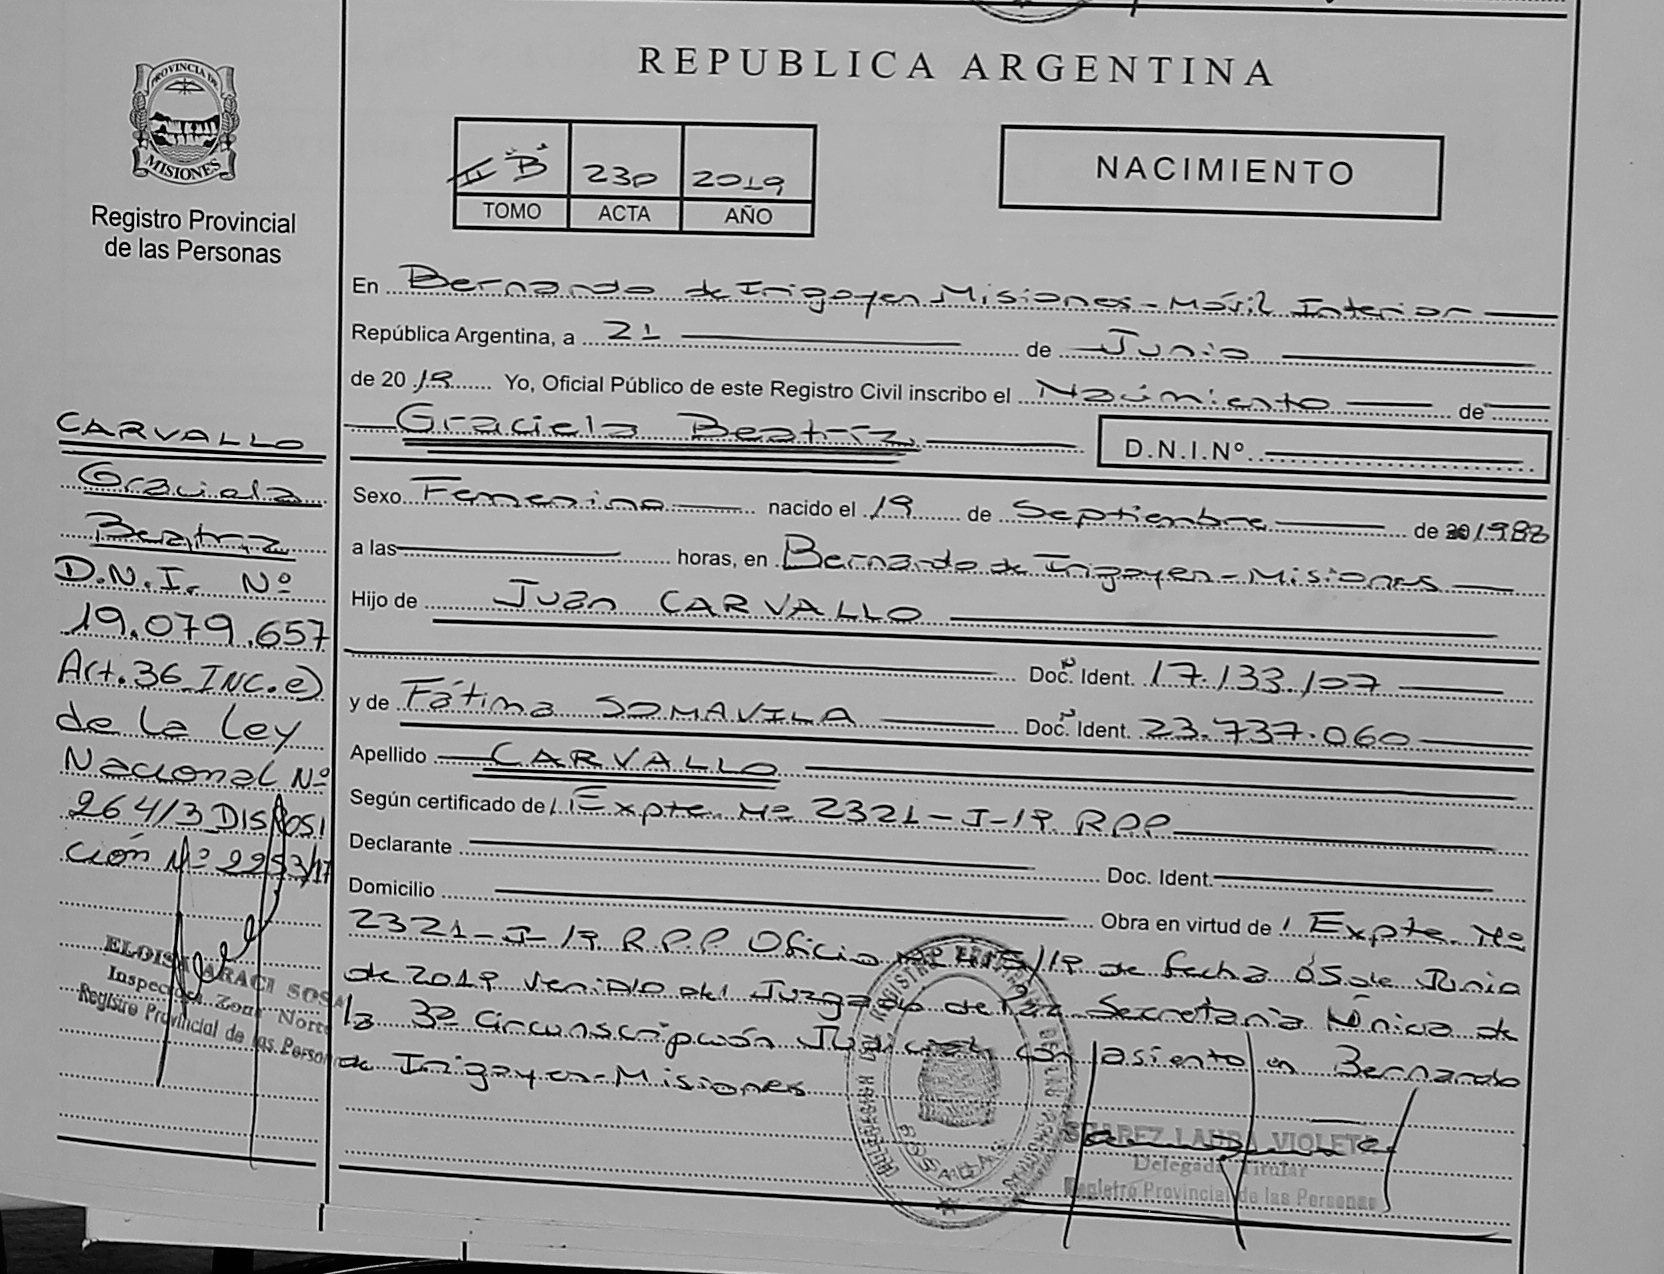 PROVINCIA DE
MISIONES
Registro Provincial
de las Personas
REPUBLICA ARGENTINA
II "B" 230 2019
TOMO ACTA AÑO
NACIMIENTO
En Bernardo de Irigoyen Misiones - Móvil Interior
República Argentina, a 21 de Junio
de 2019 Yo, Oficial Público de este Registro Civil inscribo el Nacimiento de
Graciela Beatriz
D.N.I.Nº
Sexo Femenino nacido el 19 de Septiembre de 1988
a las horas, en Bernardo de Irigoyen - Misiones
Hijo de Juan CARVALLO
Doc. Ident. 17.133.107
y de Fátima SOMAVILA Doc. Ident. 23.737.060
Apellido CARVALLO
Según certificado de Expte. Nº 2321-J-19 RPP
Declarante Doc. Ident.
Domicilio Obra en virtud de Expte. Nº
2321-J-19 R.P.P Oficio Nº /19 de fecha 05 de Junio
de 2019 venido del Juzgado de Paz Secretaria Única de
la 3ª Circunscripción Judicial con asiento en Bernardo
de Irigoyen-Misiones
CARVALLO
Graciela
Beatriz
D.N.I. Nº
19.079.657
Art. 36 INC. e)
de la Ley
Nacional Nº
26413 DISPOSI
ción Nº 2253/17
ELOISA ARACI SOSA
Inspector Zona Norte
Registro Provincial de las Personas
SUAREZ LAURA VIOLETA
Delegada Titular
Registro Provincial de las Personas